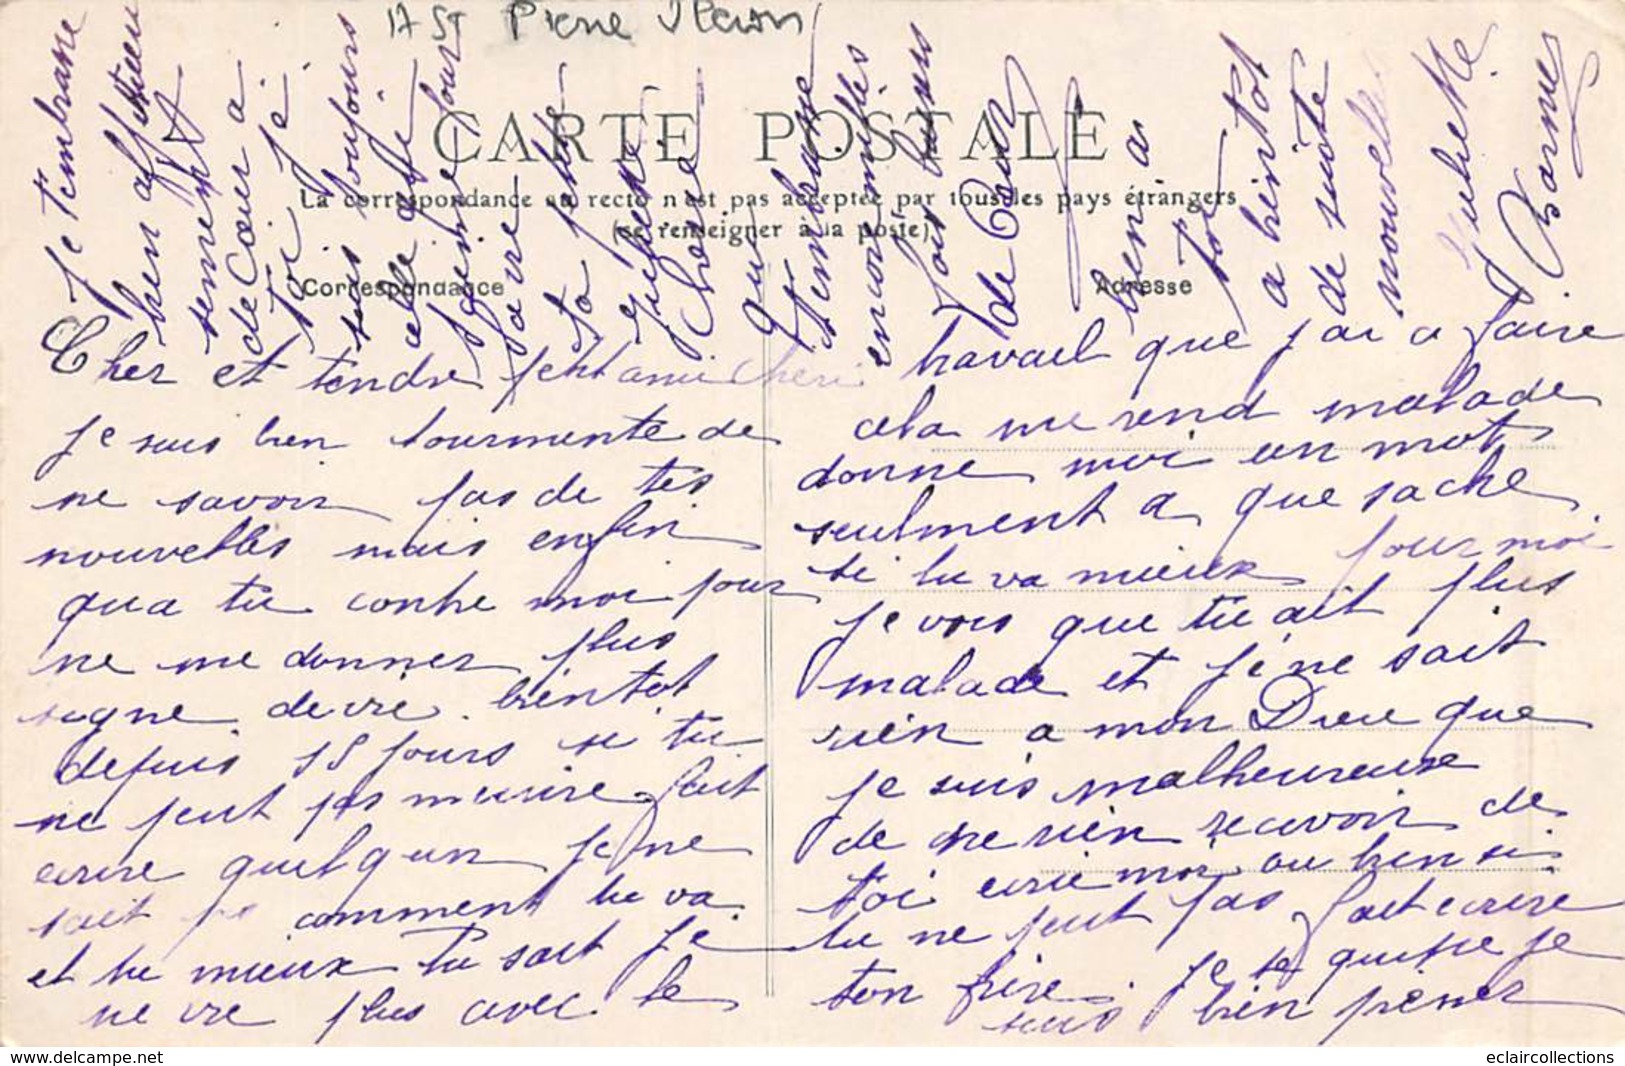 17 St Pierre Oleron
CARTE POSTALE
La correspondance au recto n'est pas acceptée par tous les pays étrangers
(se renseigner à la poste)
Correspondance
Adresse
Cher et tendre petit ami cheri
je suis bien tourmenté de
ne savoir pas de tes
nouvelles mais enfin
qua tu contre moi pour
ne me donner plus
signe de vie bientot
depuis 15 jours si tu
ne peut pas mecrire fait
ecrire quelqun je ne
sait pe comment tu va
et tu mieux tu sait je
ne vie plus avec le
travail que jai a faire
cela me rend malade
donne moi un mot
seulment a que sache
si tu va mieux pour moi
je vois que tu ait plus
malade et je ne sait
rien a mon Dieu que
je suis malheureuse
de ne rien recevoir de
toi ecrie moi ou bien si
tu ne peut pas fait ecrire
ton frère. je te quitte je
suis bien peiner
je tembrasse
bien affectueu
sement
de Cœur a
toi je
suis toujours
celle qui
peine pour
ta petite
Juliette
Cherie
qui
tembrasse
encor milles
fois
de Cœur
bien a
toi
a bientot
de suite
nouvelle
Juliette